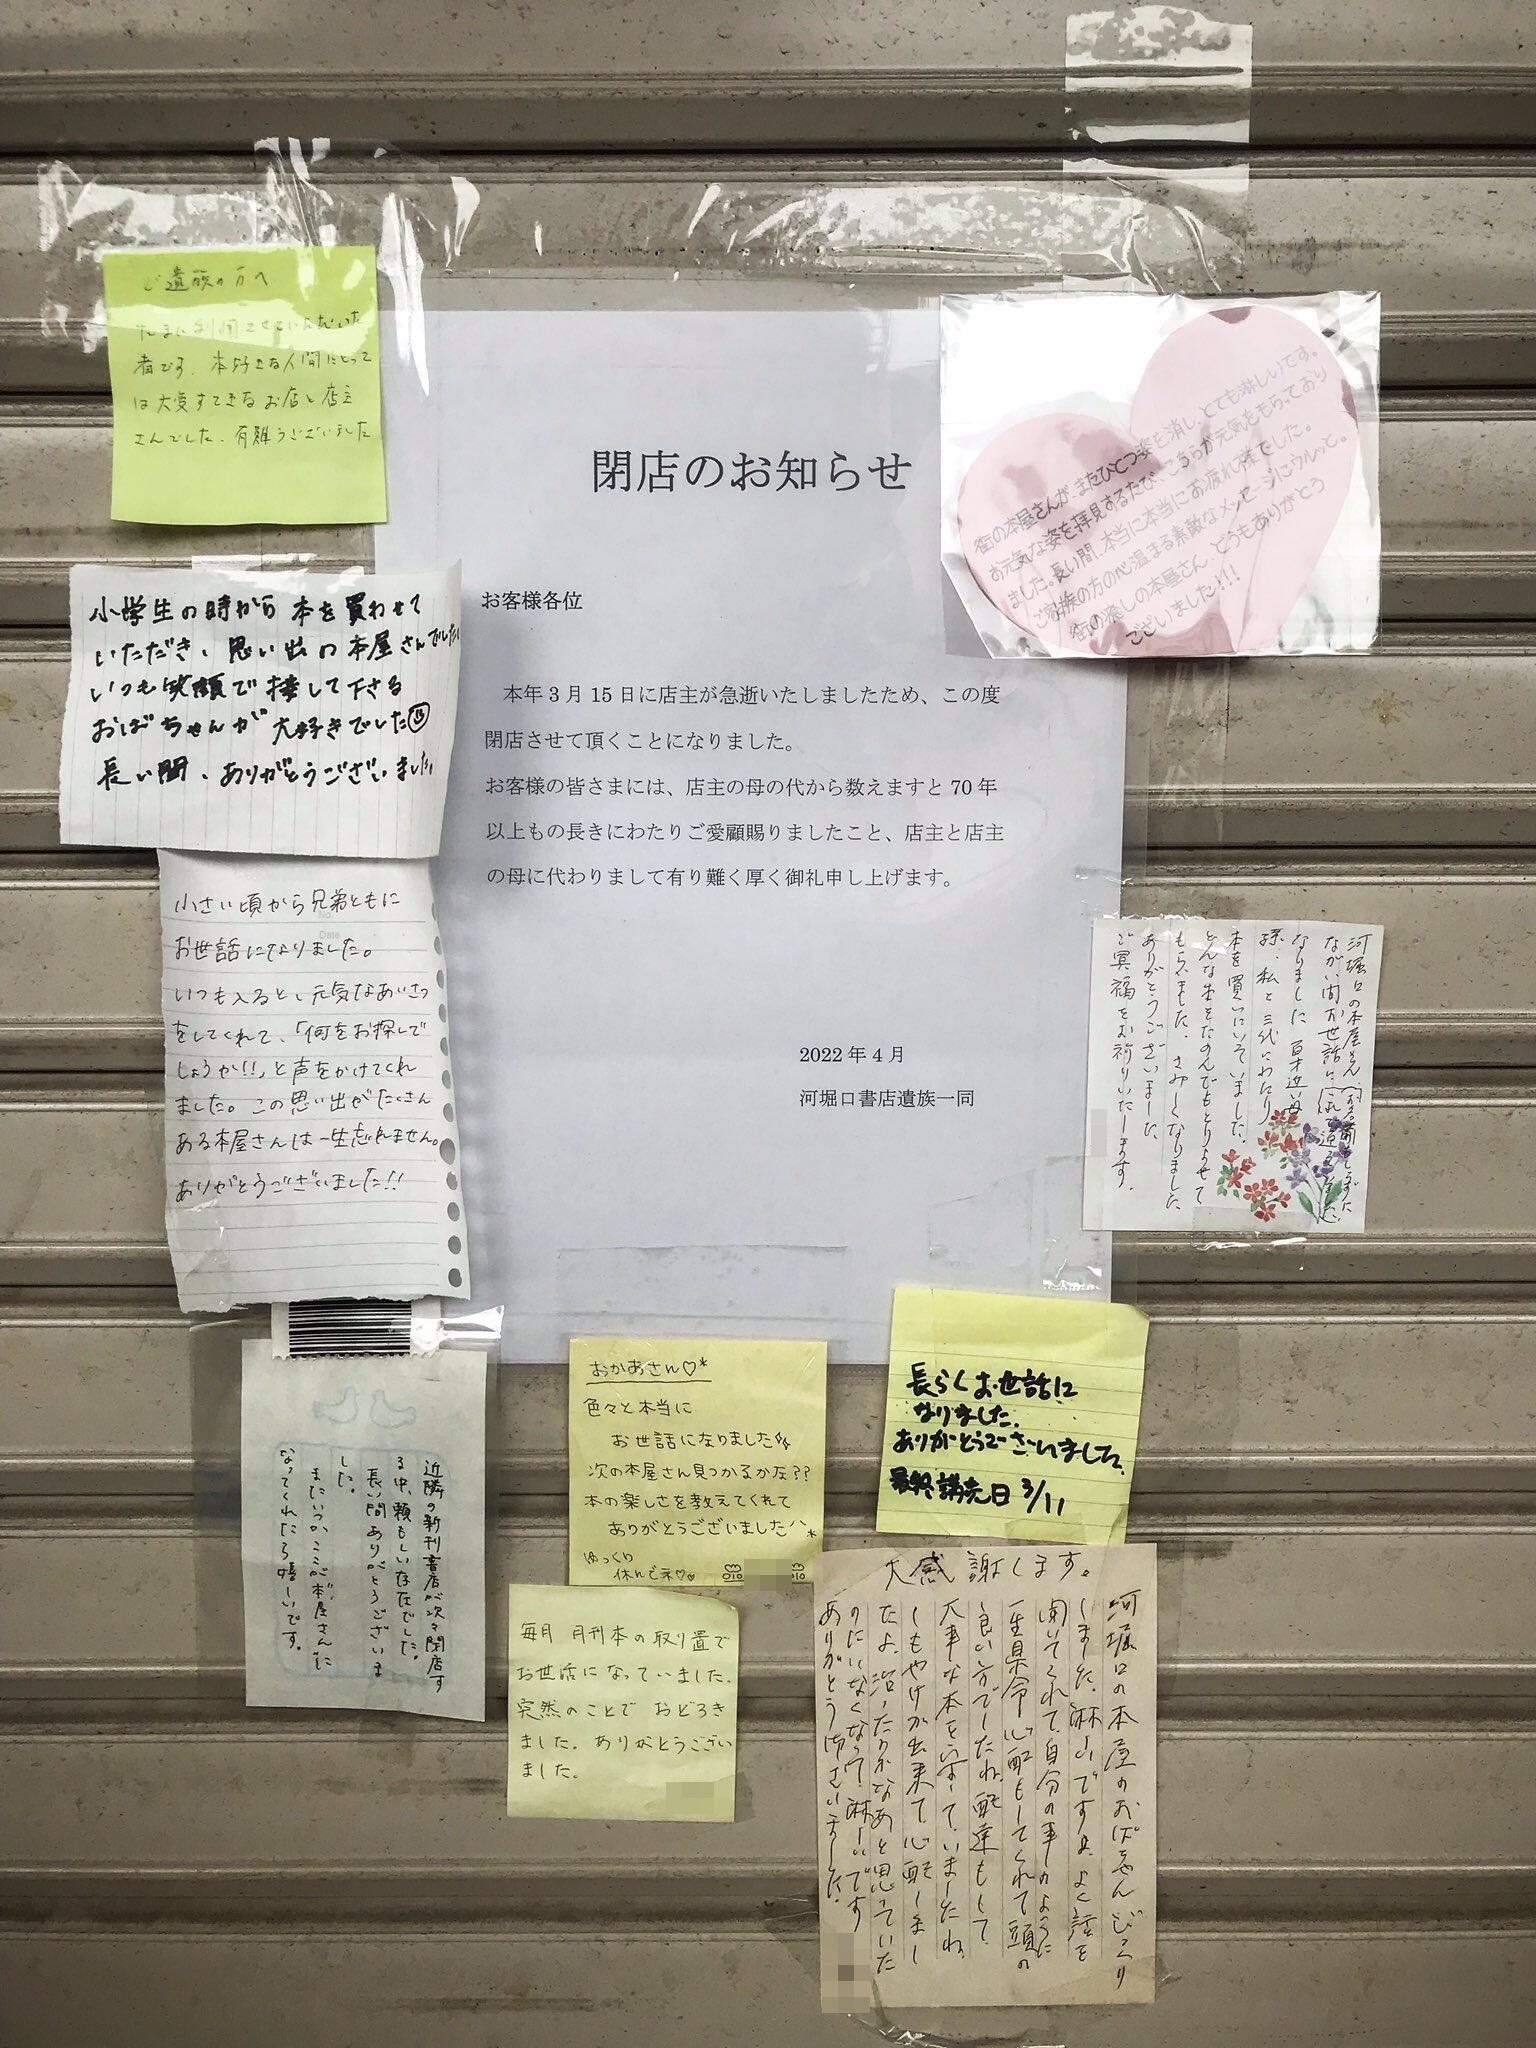 ご遺族の方へ
たまに利用させていただいた
者です。本好きな人間にとって
は大変すてきなお店と店主
さんでした。有難うございました
閉店のお知らせ
お客様各位
本年3月15日に店主が急逝いたしましたため、この度
閉店させて頂くことになりました。
お客様の皆さまには、店主の母の代から数えますと70年
以上もの長きにわたりご愛顧賜りましたこと、店主と店主
の母に代わりまして有り難く厚く御礼申し上げます。
2022年4月
河堀口書店遺族一同
街の本屋さんが、またひとつ姿を消し、とても淋しいです。
お元気な姿を拝見するたび、こちらが元気をもらっており
ました。長い間、本当に本当にお疲れ様でした。
ご家族の方の心温まる素敵なメッセージにウルッと。
街の癒しの本屋さん、どうもありがとう
ございました!!!
小学生の時から 本を買わせて
いただき、思い出の本屋さんでした
いつも笑顔で接して下さる
おばちゃんが大好きでした
長い間、ありがとうございました
No.
Date
小さい頃から兄弟ともに
お世話になりました。
いつも入ると、元気なあいさつ
をしてくれて、「何をお探しで
しょうか!!」と声をかけてくれ
ました。この思い出がたくさん
ある本屋さんは一生忘れません。
ありがとうございました!!
河堀口の本屋さん
ながい間お世話に
なりました 百才近い母
孫、私と三代にわたり
本を買いにいていました。
どんな本をたのんでもとりよせて
もらいました。さみしくなりました
ありがとうございました。
ご冥福をお祈りいたします。
近隣の新刊書店が次々閉店す
る中、頼もしい存在でした。
長い間ありがとうございま
した。
またいつかここが本屋さんに
なってくれたら嬉しいです。
おかあさん♡*
色々と本当に
お世話になりました
次の本屋さん見つかるかな??
本の楽しさを教えてくれて
ありがとうございました^^*
ゆっくり
休んでネ♡♡
長らくお世話に
なりました。
ありがとうございました。
最終講読日 3/11
毎月 月刊本の取り置で
お世話になっていました。
突然のことで おどろき
ました。ありがとうござい
ました。
大感謝します。
河堀口の本屋のおばちゃんびっくり
しました。淋しいですよ。よく話を
聞いてくれて、自分の事のように
一生県命心配もしてくれて頭の
良い方でしたね。配達もして
大事な本をいすって、いましたね。
しもやけが出来て、心配しまし
たよ。治ったかなあと思っていた
のにいなくなって、淋しいです
ありがとう御ざいました。